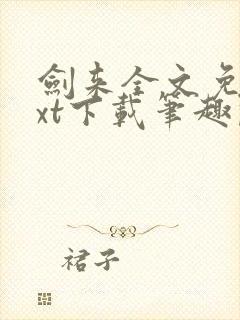 劍来全文免
xt下載筆趣
裙子